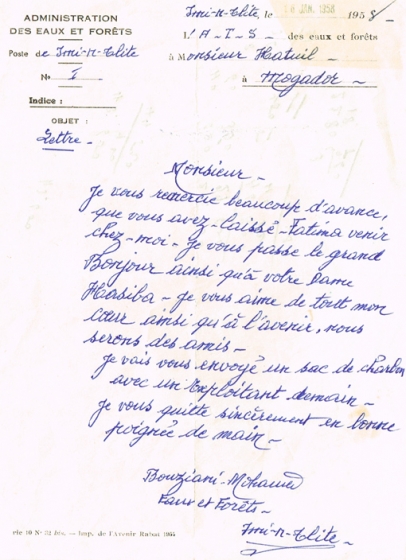 ADMINISTRATION
DES EAUX ET FORÊTS
Poste de Imi-N-Tlite
No I
Indice :
OBJET :
Lettre -
Imi-N-Tlite, le 18 JAN. 1958 1958 -
L'A-T-S - des eaux et forêts
à Monsieur Hatuil -
à Mogador -
Monsieur -
Je vous remercie beaucoup d'avance,
que vous avez-laissé-Fatima venir
chez-moi - Je vous passe le grand
Bonjour ainsi qu'à votre Dame
Hasiba - je vous aime de tout mon
cœur ainsi qu'à l'avenir, nous
serons des amis -
je vais vous envoyé un sac de charbon
avec un Exploitant demain -
je vous quitte sincèrement en bonne
poignée de main -
Bouziani-Mohamed
Eaux et Forêts -
Imi-N-Tlite -
rie 10 No 32 bis. — Imp. de l'Avenir Rabat